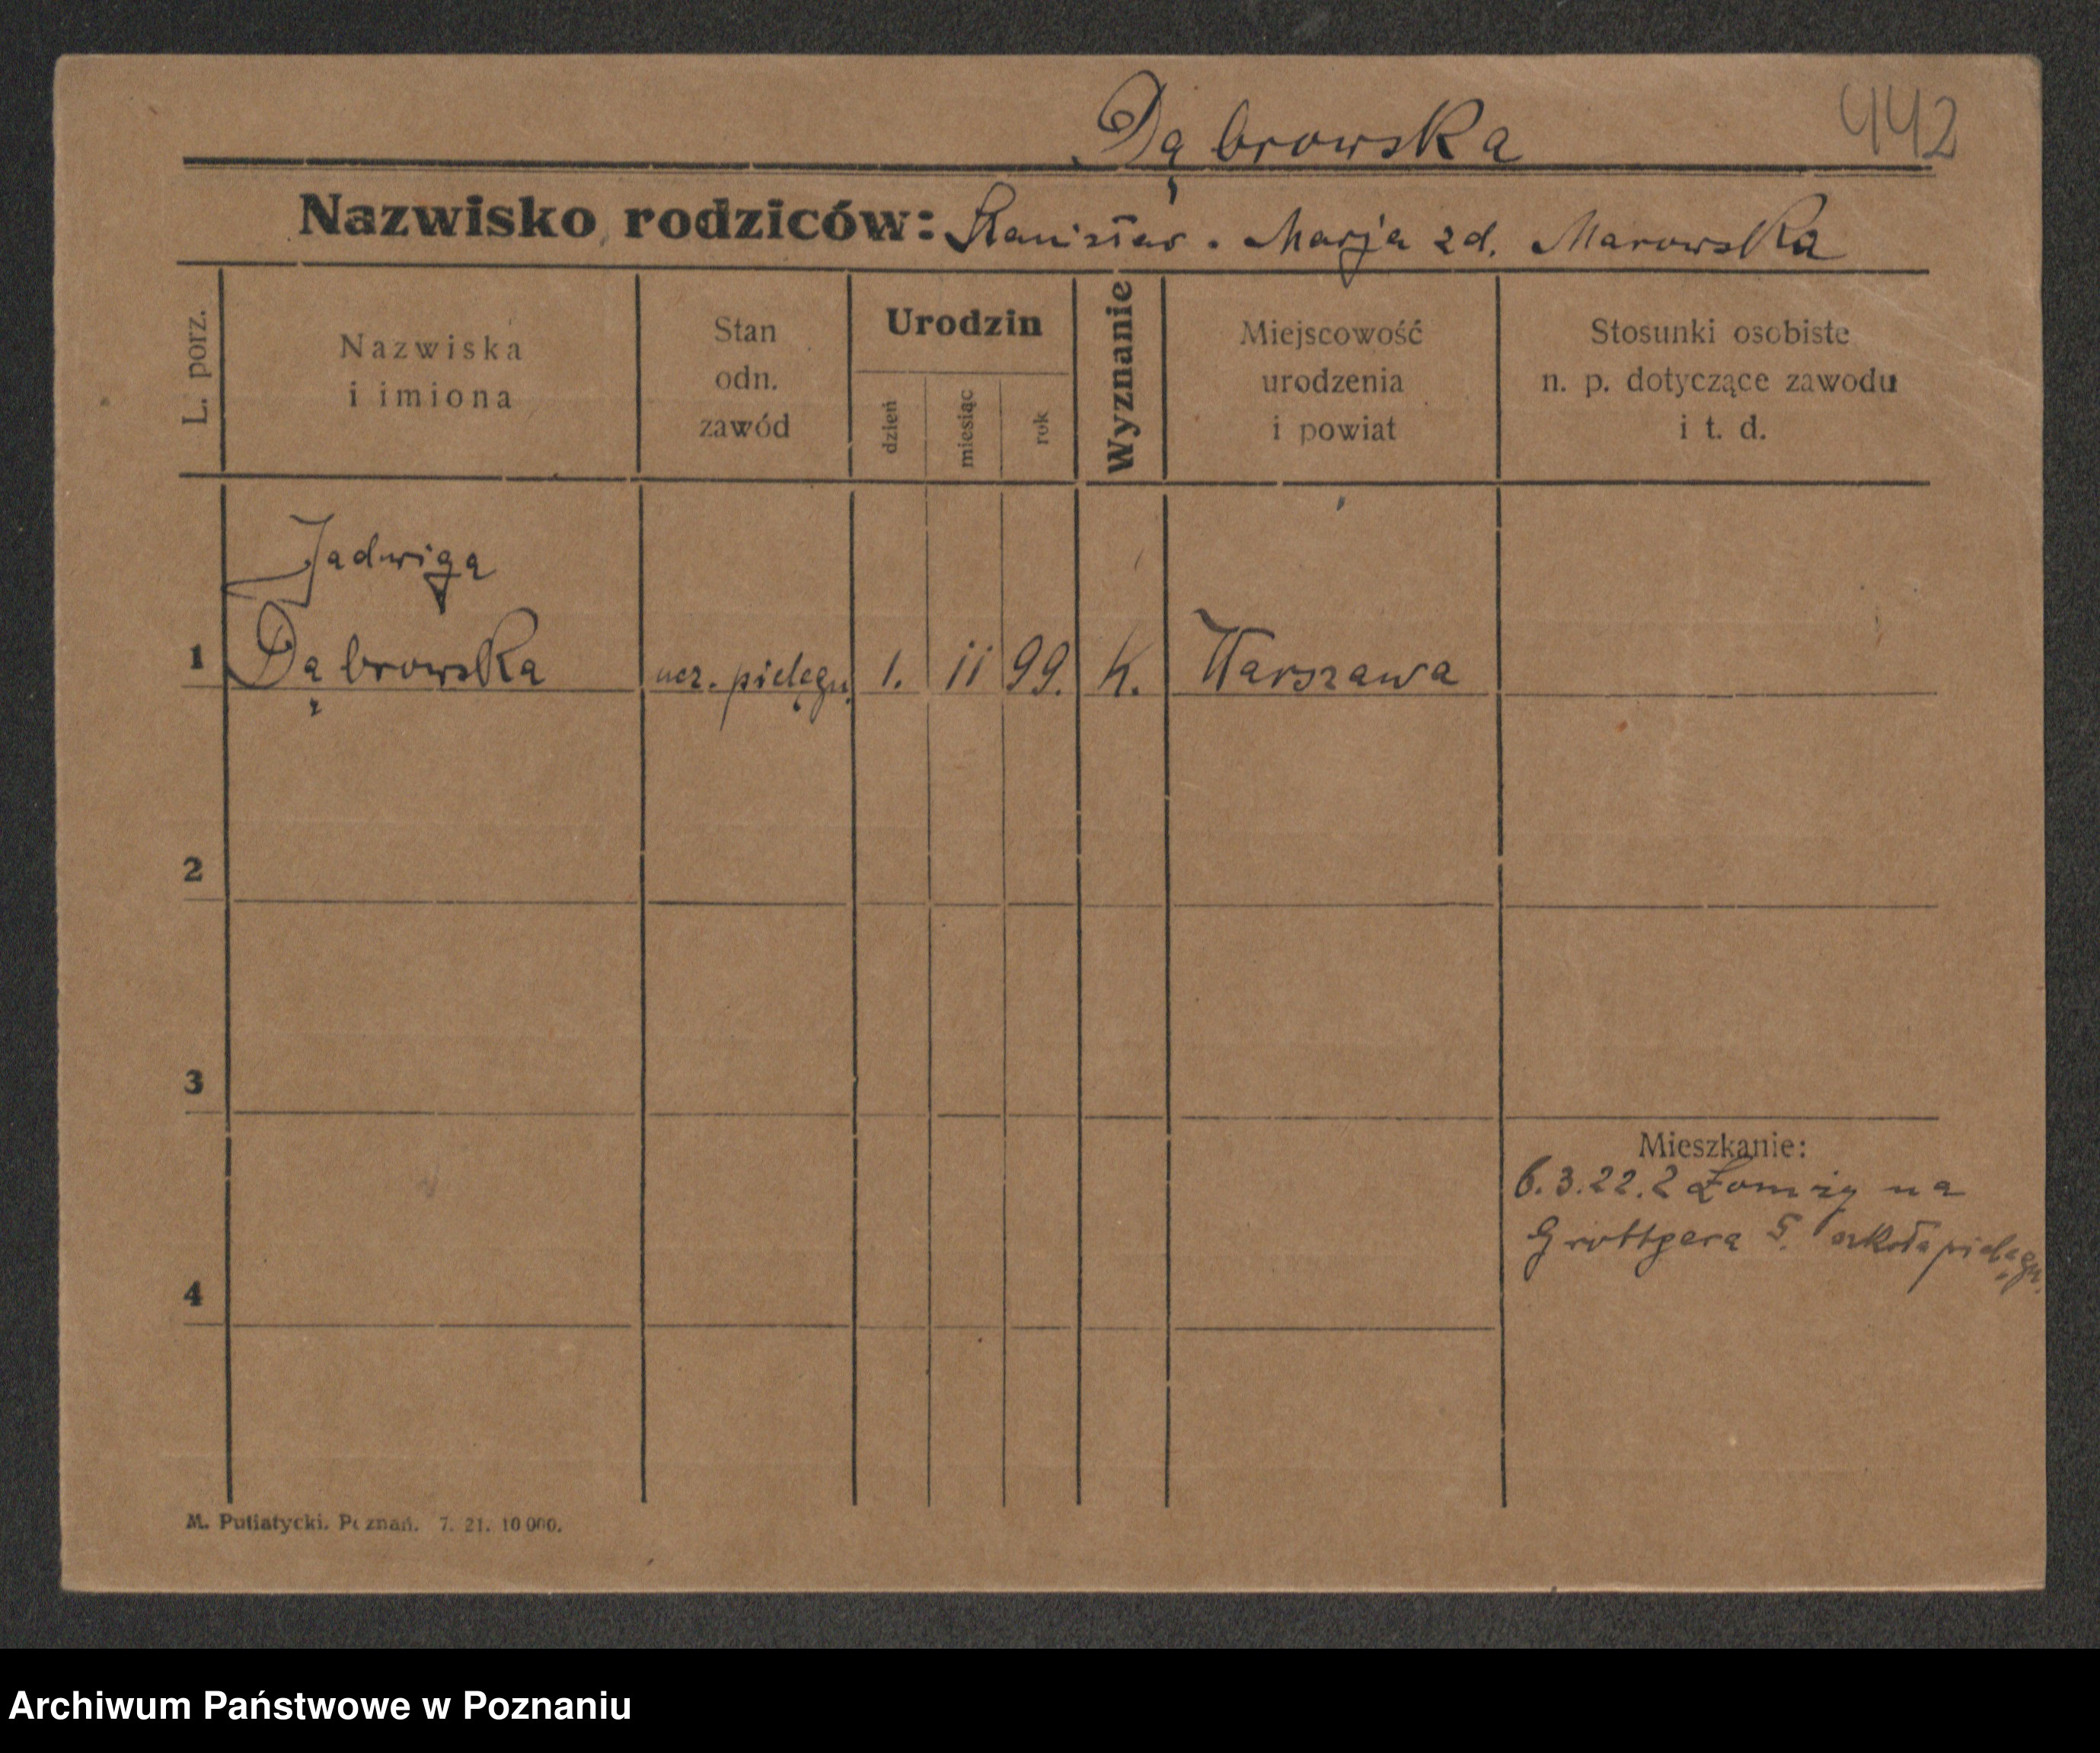 Dąbrowska
442
Nazwisko rodziców: Stanisław. Marja zd. Marowska
L. porz.
Nazwiska
i imiona
Stan
odn.
zawód
Urodzin
dzień
miesiąc
rok
Wyznanie
Miejscowość
urodzenia
i powiat
Stosunki osobiste
n. p. dotyczące zawodu
i t. d.
Jadwiga
1 Dąbrowska ucz. pielęgn. 1. 11 99. K. Warszawa
2
3
Mieszkanie:
6.3.22. z Łomży na
Grottgera 5. szkoła pielęgn.
4
M. Putiatycki. Poznań. 7. 21. 10 000.
Archiwum Państwowe w Poznaniu